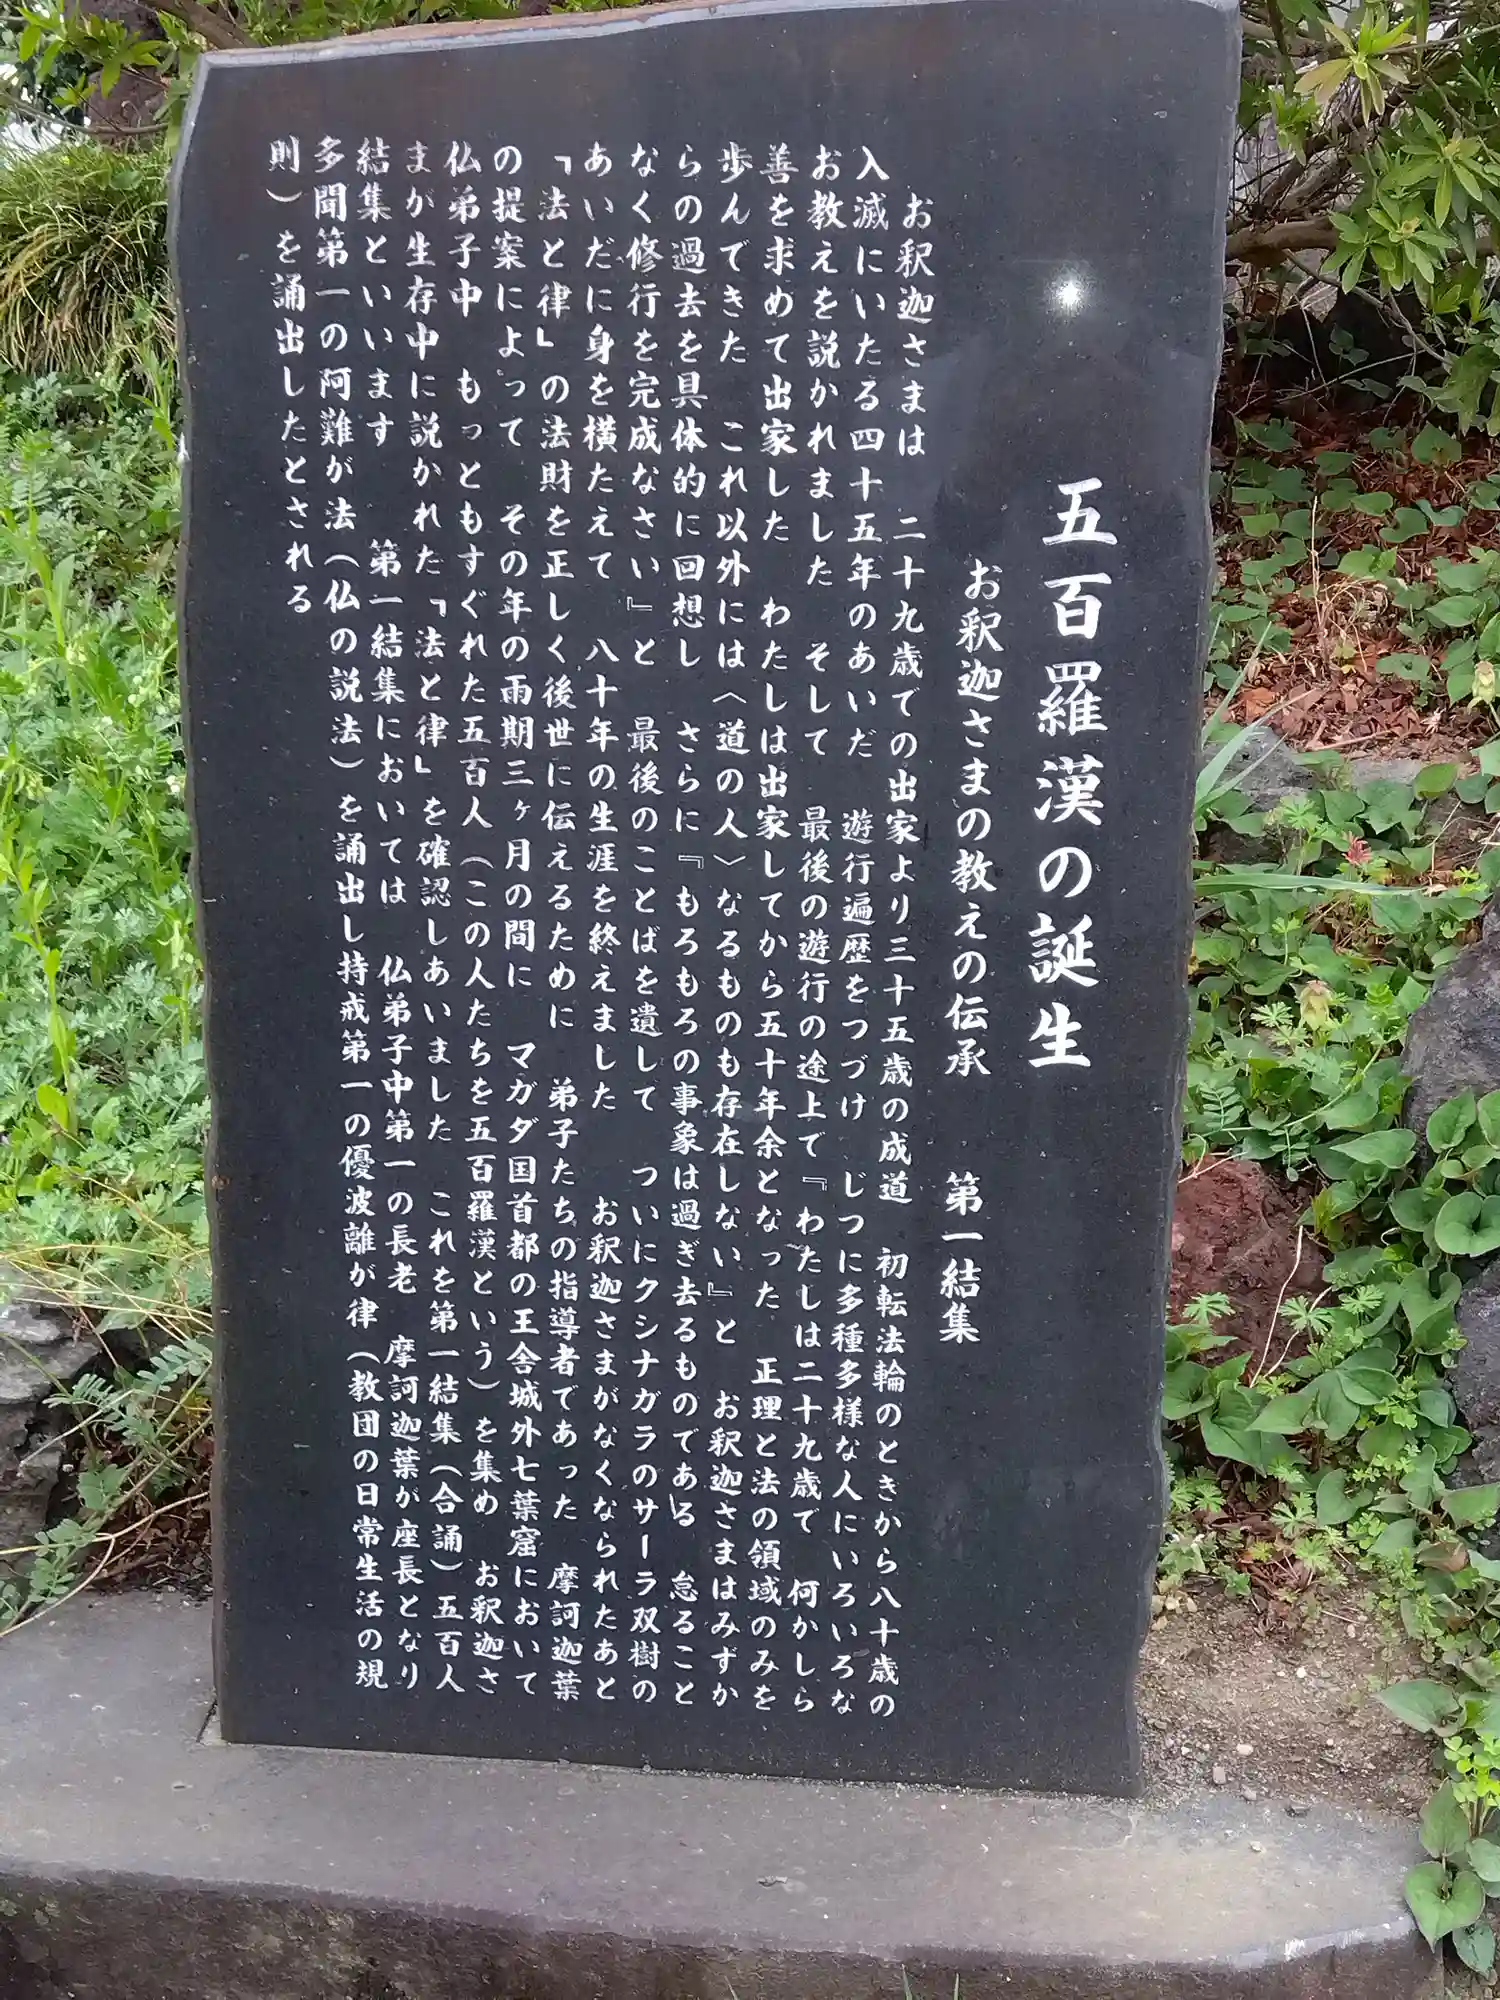 五百羅漢の誕生
お釈迦さまの教えの伝承　第一結集
お釈迦さまは　二十九歳での出家より三十五歳の成道　初転法輪のときから八十歳の
入滅にいたる四十五年のあいだ　遊行遍歴をつづけ　じつに多種多様な人にいろいろな
お教えを説かれました　そして　最後の遊行の途上で『わたしは二十九歳で　何かしら
善を求めて出家した　わたしは出家してから五十年余となった　正理と法の領域のみを
歩んできた　これ以外には〈道の人〉なるものも存在しない』と　お釈迦さまはみずか
らの過去を具体的に回想し　さらに『もろもろの事象は過ぎ去るものである　怠ること
なく修行を完成なさい』と　最後のことばを遺して　ついにクシナガラのサーラ双樹の
あいだに身を横たえて　八十年の生涯を終えました　お釈迦さまがなくなられたあと
「法と律」の法財を正しく後世に伝えるために　弟子たちの指導者であった　摩訶迦葉
の提案によって　その年の雨期三ヶ月の間に　マガダ国首都の王舎城外七葉窟において
仏弟子中　もっともすぐれた五百人（この人たちを五百羅漢という）を集め　お釈迦さ
まが生存中に説かれた「法と律」を確認しあいました　これを第一結集（合誦）五百人
結集といいます　第一結集においては　仏弟子中第一の長老　摩訶迦葉が座長となり
多聞第一の阿難が法（仏の説法）を誦出し持戒第一の優波離が律（教団の日常生活の規
則）を誦出したとされる